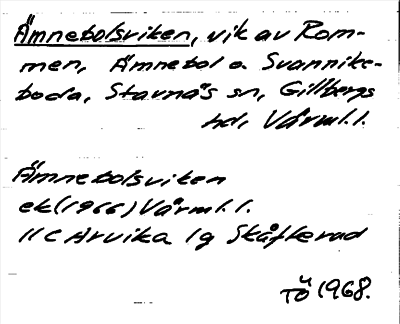 Ämnebolsviken, vik av Rom-
men, Ämnebol o. Svannike-
boda, Stavnäs sn, Gillbergs
hd, Värml. l.
Ämnebolsviken
ek (1966) Värml. l.
11C Arvika 1g Skåfterud
TÖ 1968.